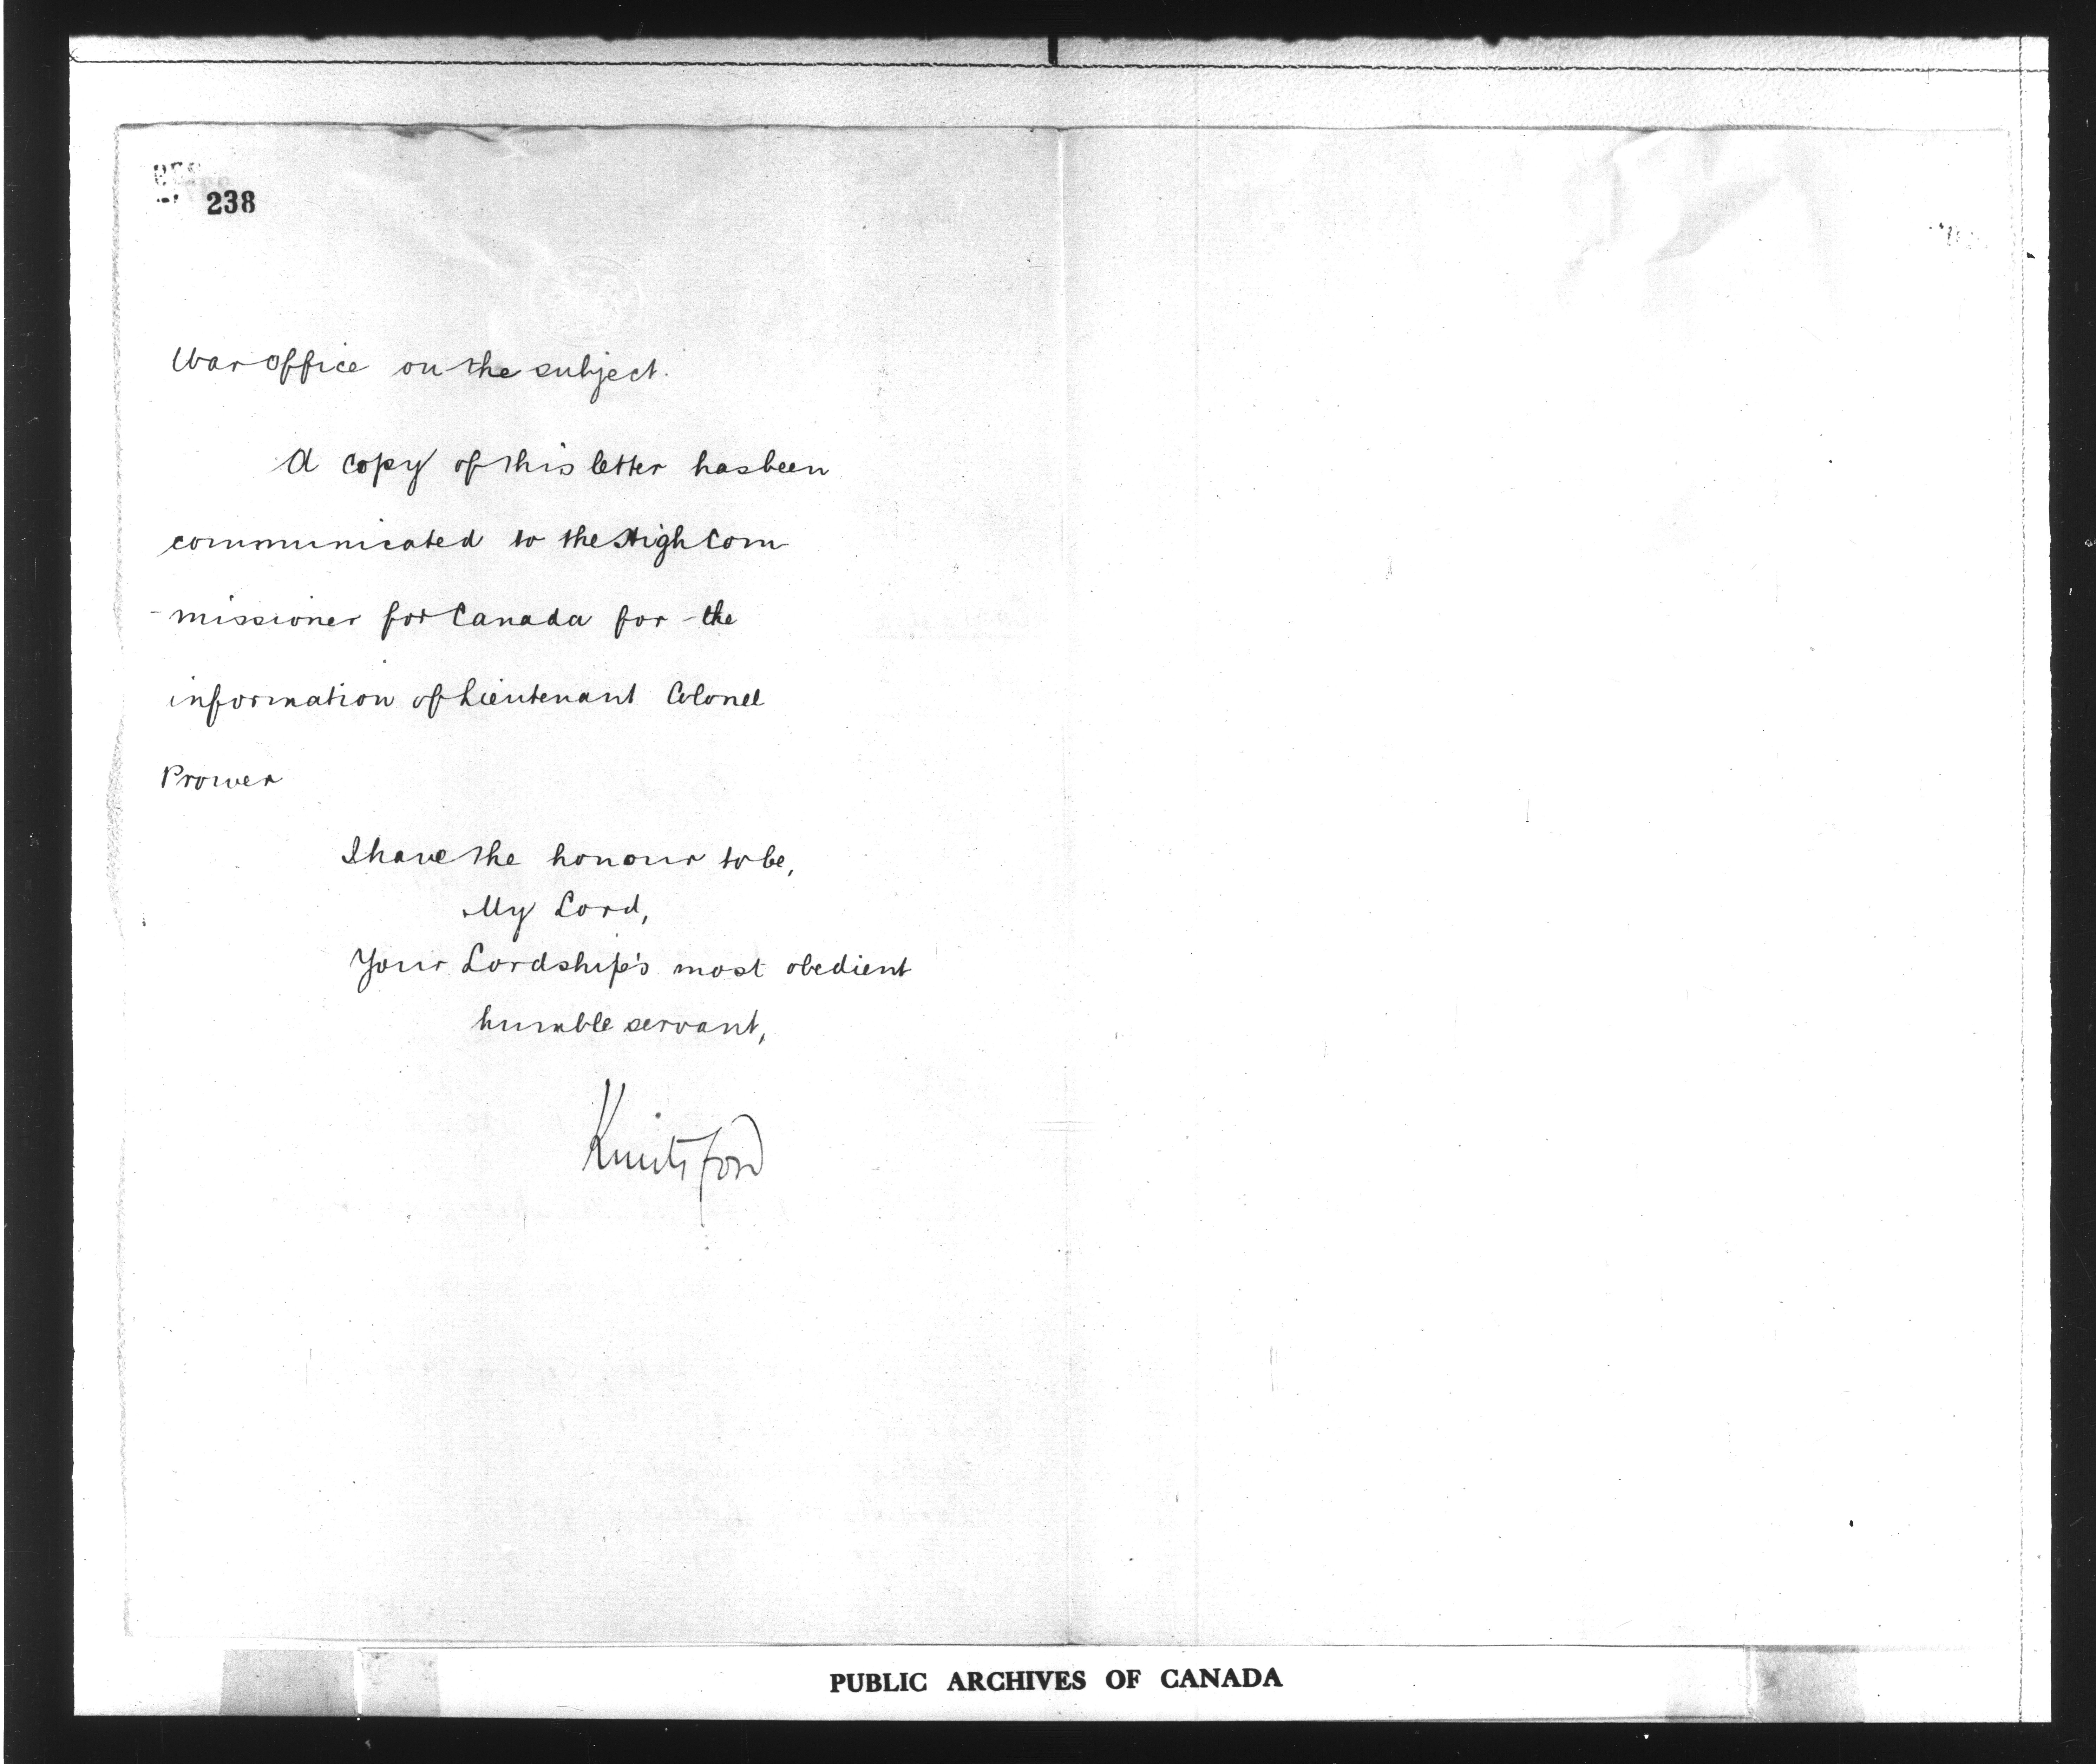 238
War Office on the subject.
A copy of this letter has been
communicated to the High Com
-missioner for Canada for the
information of Lieutenant Colonel
Prower
I have the honour to be,
My Lord,
Your Lordship's most obedient
humble servant,
Knutsford
PUBLIC ARCHIVES OF CANADA